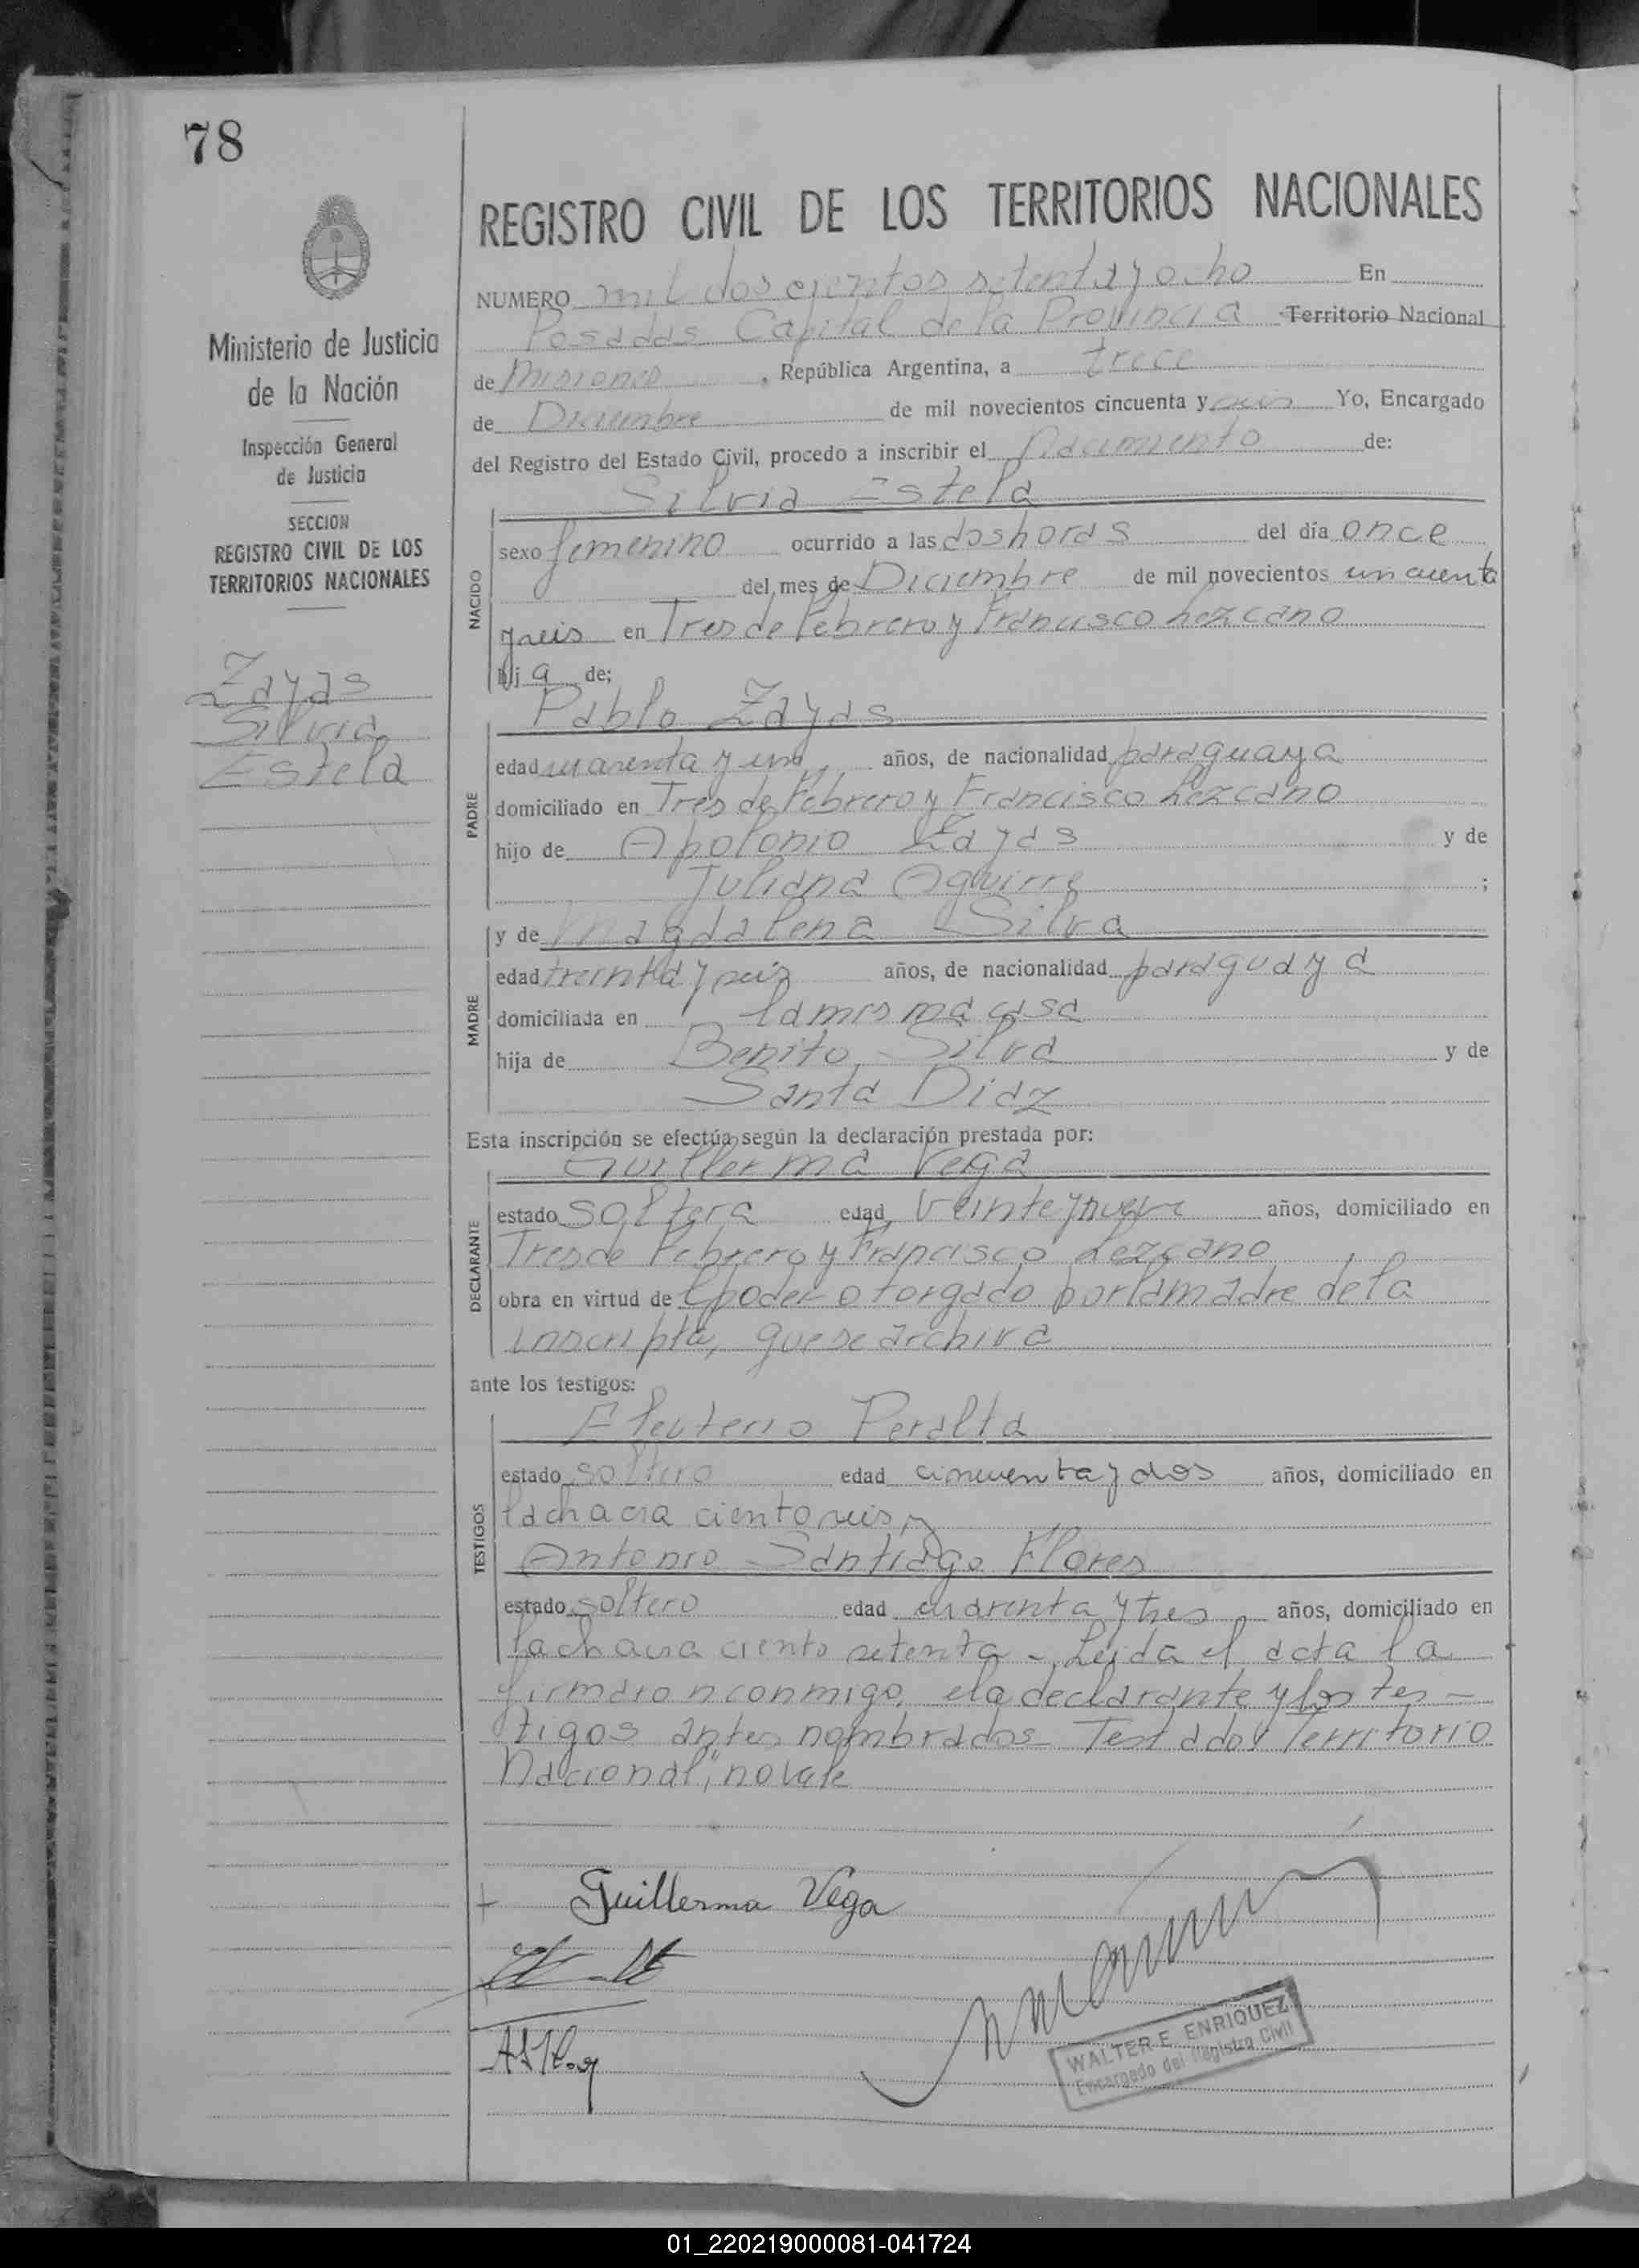 78
Ministerio de Justicia
de la Nación
Inspección General
de Justicia
SECCION
REGISTRO CIVIL DE LOS
TERRITORIOS NACIONALES
Zayas
Silvia
Estela
REGISTRO CIVIL DE LOS TERRITORIOS NACIONALES
NUMERO mil doscientos setenta y ocho En
Posadas Capital de la Provincia Territorio Nacional
de Misiones, República Argentina, a trece
de Diciembre de mil novecientos cincuenta y seis Yo, Encargado
del Registro del Estado Civil, procedo a inscribir el Nacimiento de:
Silvia Estela
NACIDO
sexo femenino ocurrido a las dos horas del día once
del mes de Diciembre de mil novecientos cincuenta
y seis en Tres de Febrero y Francisco Lezcano
hija de;
Pablo Zayas
PADRE
edad cuarenta y un años, de nacionalidad paraguaya
domiciliado en Tres de Febrero y Francisco Lezcano
hijo de Apolonio Zayas y de
Juliana Aguirre ;
y de Magdalena Silva
MADRE
edad treinta y seis años, de nacionalidad paraguaya
domiciliada en la misma casa
hija de Benito Silva y de
Santa Diaz
Esta inscripción se efectúa según la declaración prestada por:
Guillerma Vega
DECLARANTE
estado soltera edad veinte y nueve años, domiciliado en
Tres de Febrero y Francisco Lezcano
obra en virtud de el poder otorgado por la madre de la
inscripta, que se archiva
ante los testigos:
Eleuterio Peralta
TESTIGOS
estado soltero edad cincuenta y dos años, domiciliado en
la chacra ciento seis y
Antonio Santiago Flores
estado soltero edad cuarenta y tres años, domiciliado en
la chacra ciento setenta - Leida el acta la
firmaron conmigo, la declarante y los tes-
tigos antes nombrados - Testado "Territorio
Nacional", no vale
Guillerma Vega
WALTER E. ENRIQUEZ
Encargado del Registro Civil
01_220219000081-041724